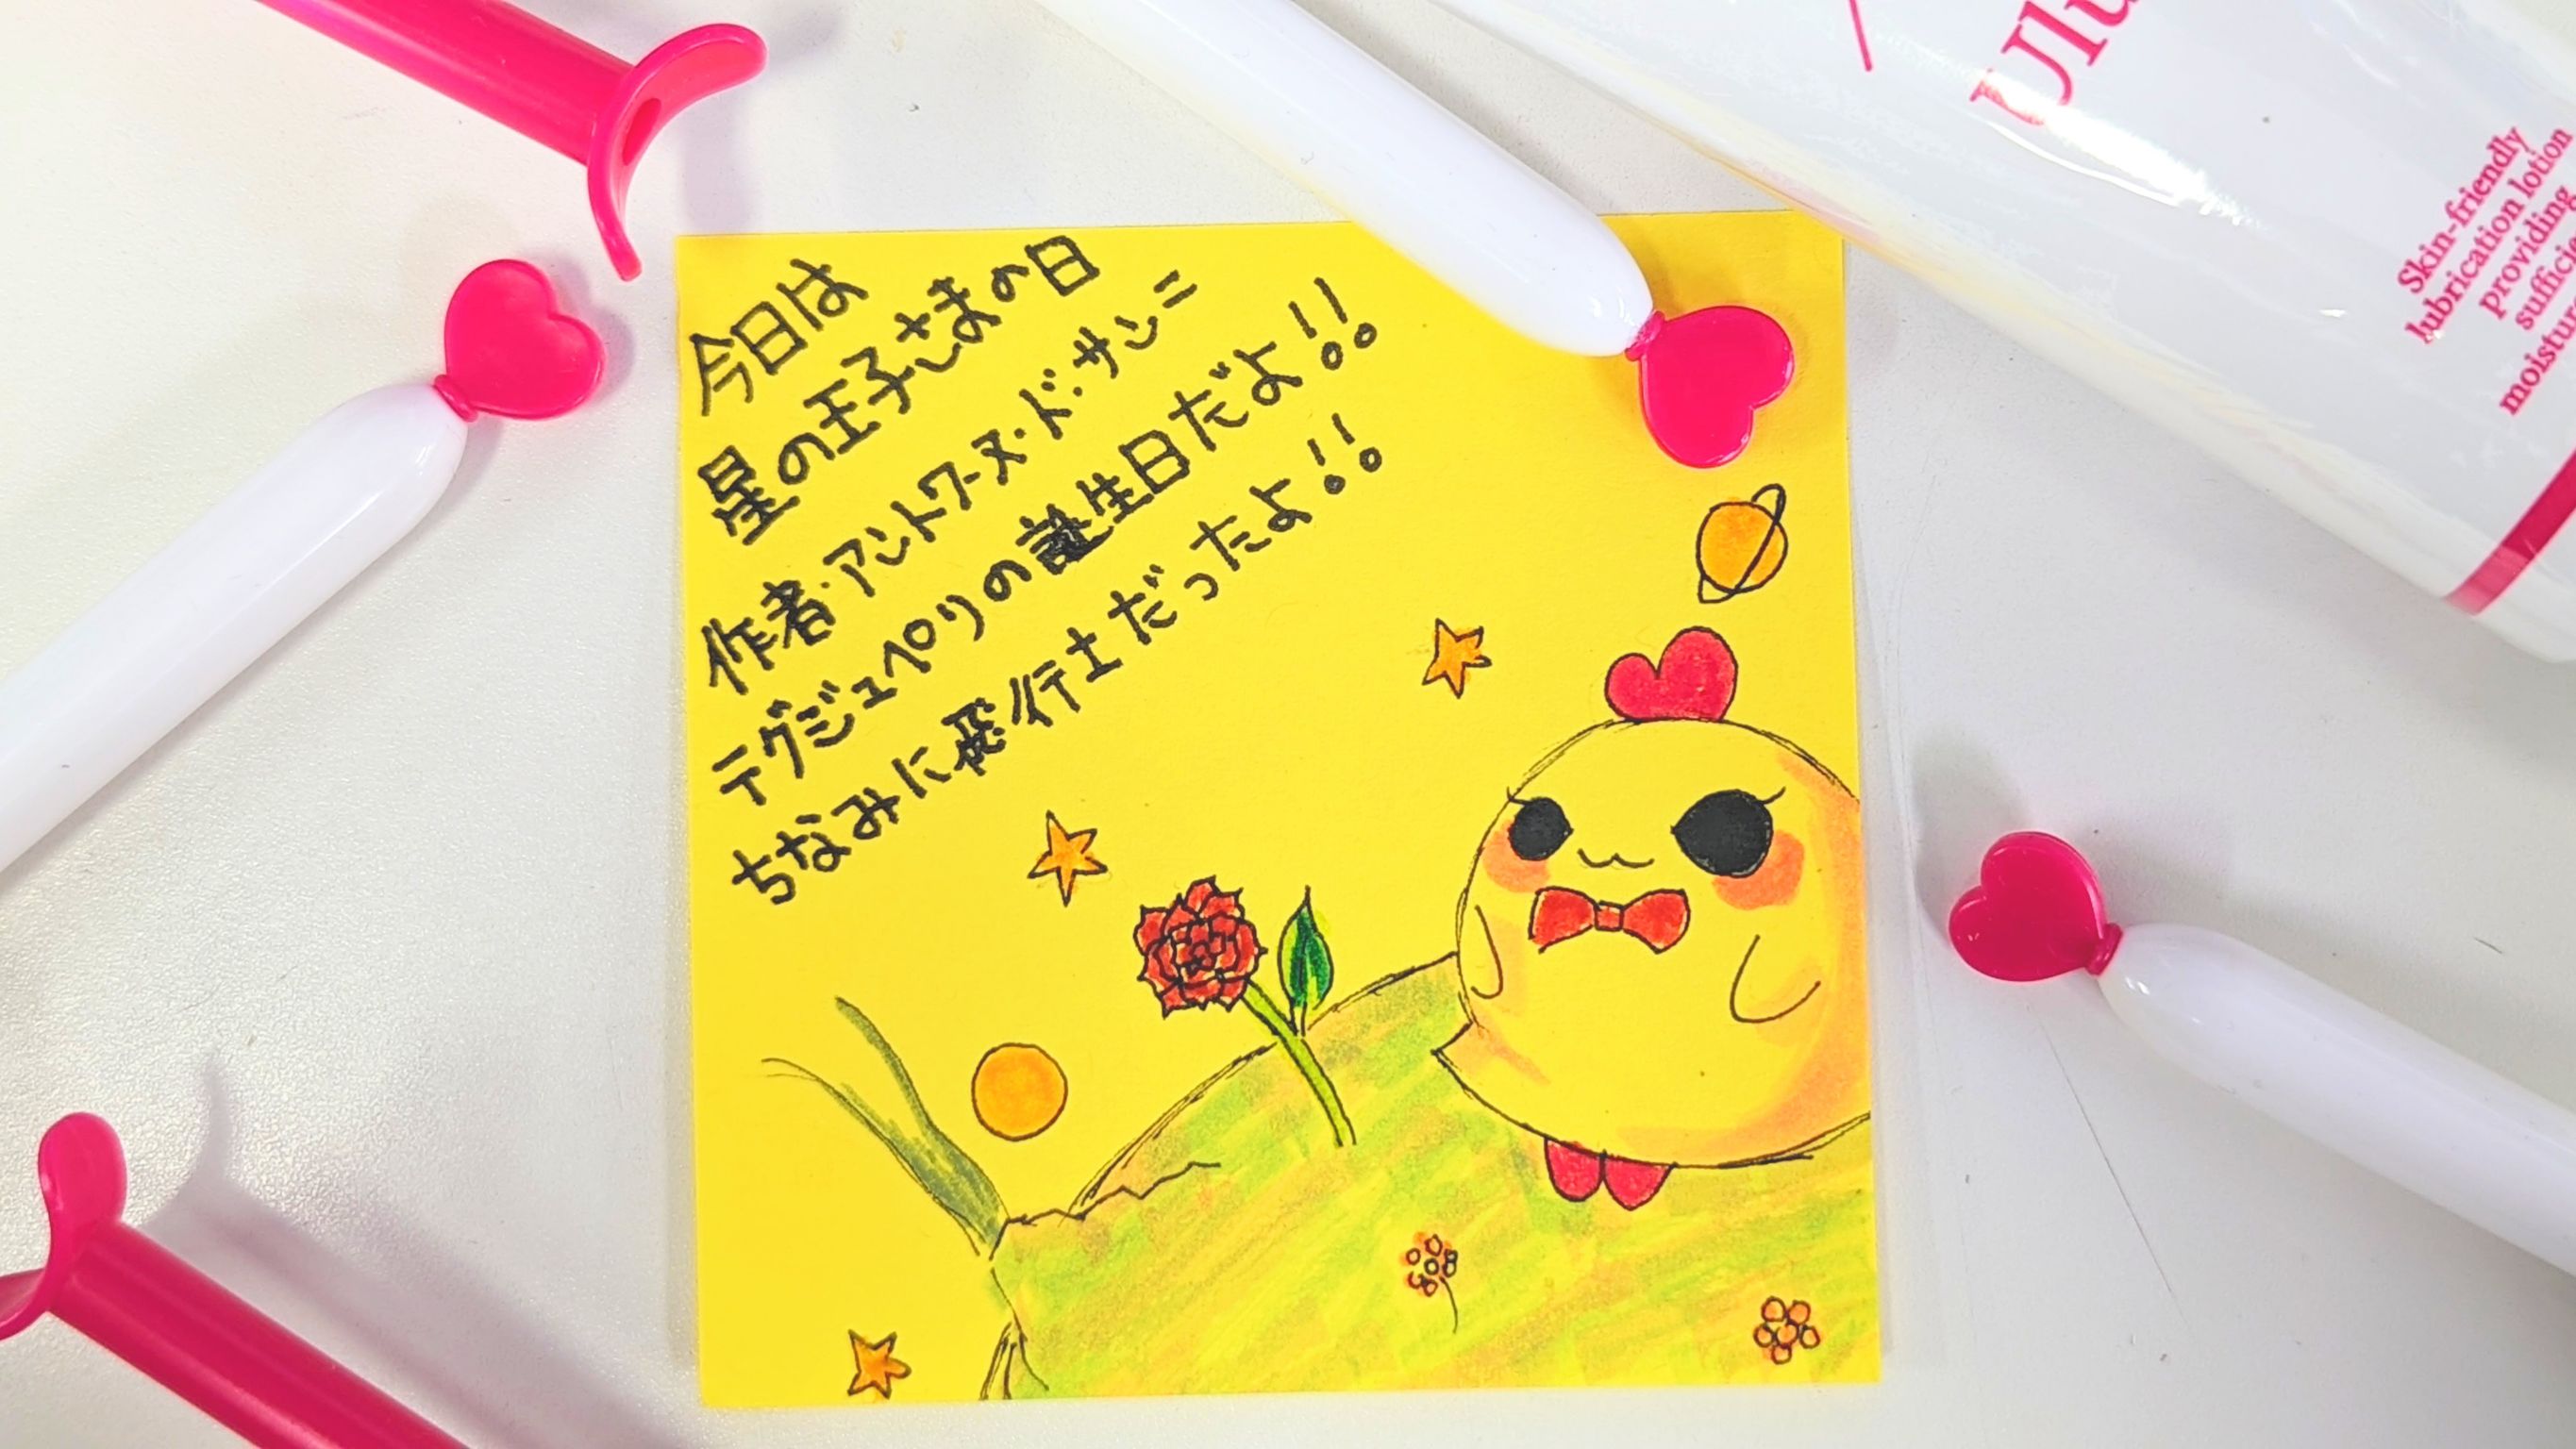 今日は
星の王子さまの日
作者・アントワーヌ・ド・サン=
テグジュペリの誕生日だよ!!
ちなみに飛行士だったよ!!
Skin-friendly
lubrication lotion
providing